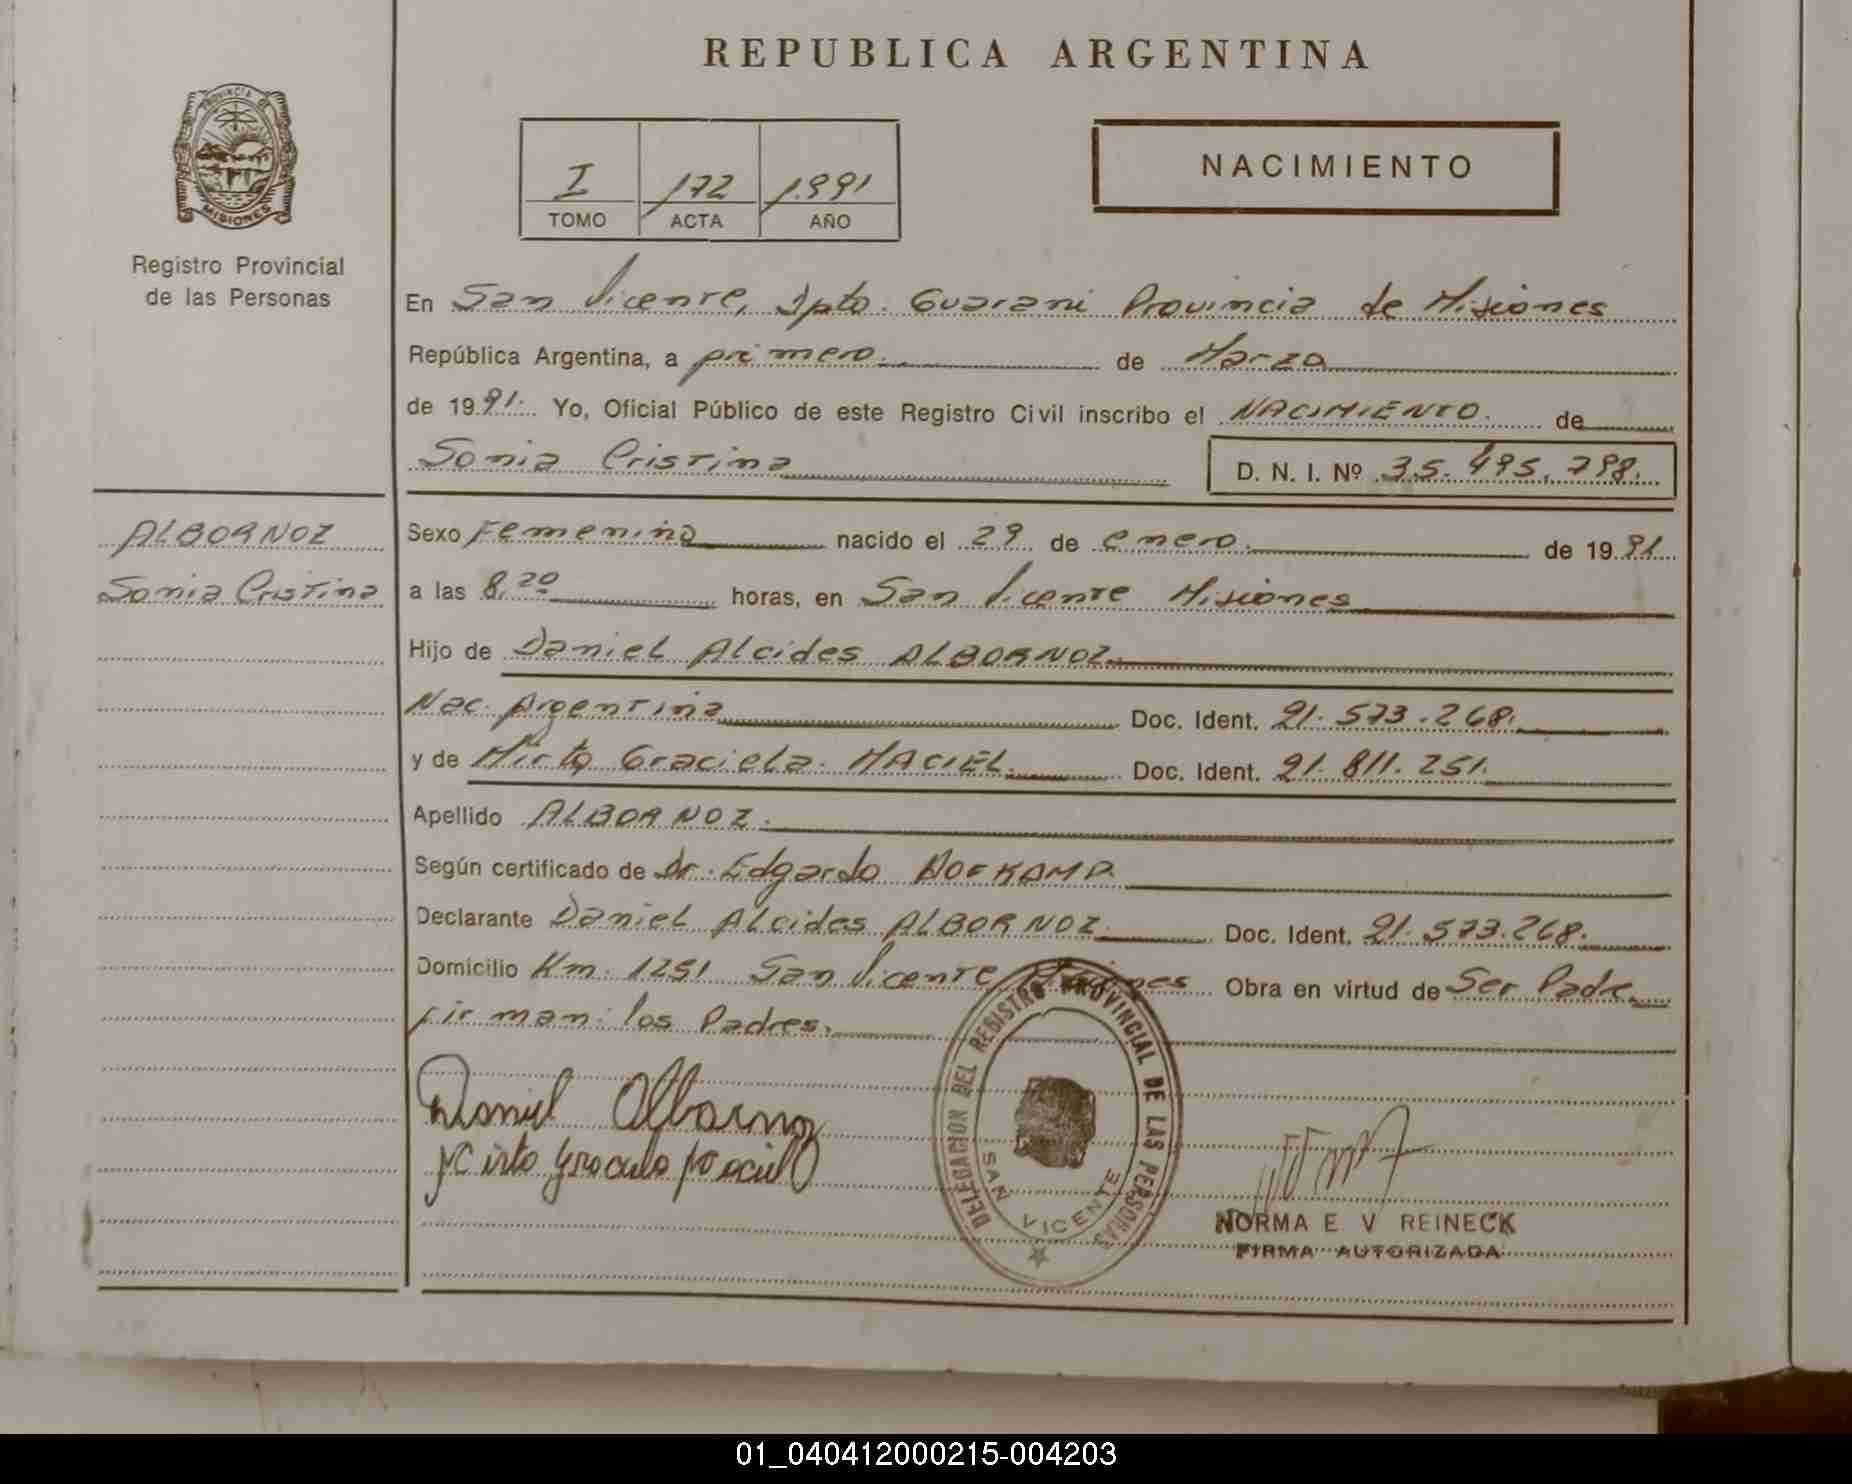 REPUBLICA ARGENTINA
PROVINCIA DE
MISIONES
Registro Provincial
de las Personas
I 172 1.991
TOMO ACTA AÑO
NACIMIENTO
En San Vicente, Dpto. Guarani Provincia de Misiones
República Argentina, a primero. de Marzo
de 1991. Yo, Oficial Público de este Registro Civil inscribo el NACIMIENTO. de
Sonia Cristina D. N. I. Nº 35.495.798.
ALBORNOZ
Sonia Cristina
Sexo Femenino nacido el 29 de enero. de 1991
a las 8,20 horas, en San Vicente Misiones
Hijo de Daniel Alcides ALBORNOZ.
Nac. Argentina Doc. Ident. 21.573.268.
y de Mirta Graciela MACIEL. Doc. Ident. 21.811.251.
Apellido ALBORNOZ.
Según certificado de Dr. Edgardo
Declarante Daniel Alcides ALBORNOZ. Doc. Ident. 21.573.268.
Domicilio Km. 1251 San Vicente, Misiones Obra en virtud de Ser Padre.
firman: los Padres.
Daniel Albornoz
Mirta Graciela Maciel
DELEGACION DEL REGISTRO PROVINCIAL DE LAS PERSONAS
SAN VICENTE
NORMA E V REINECK
FIRMA AUTORIZADA
01_040412000215-004203